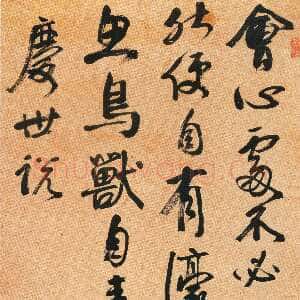 會心處不必
然便自有濠
魚鳥獸自来
慶世説